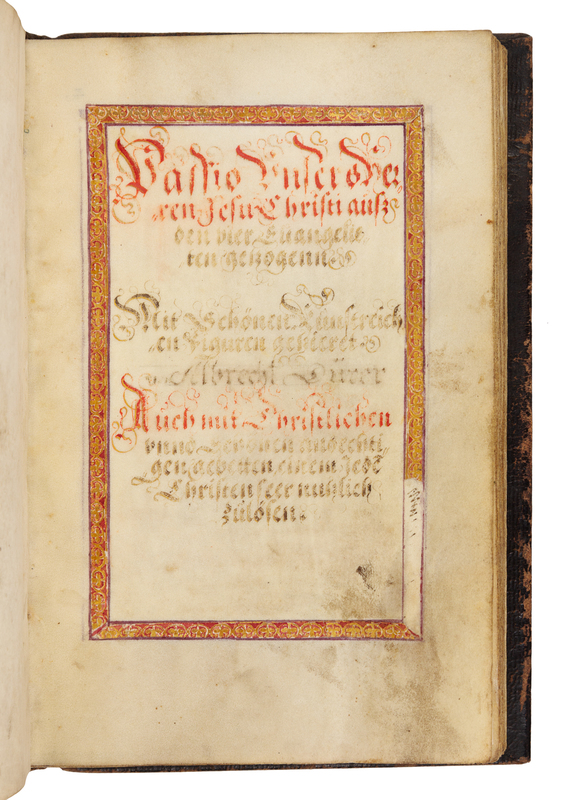 Passio Vnsers Her⸗
ren Jesu Christi ausz
den vier Euangelis⸗
ten gezogenn
Mit Schönen Kunstreich
en Figuren gezieret
Albrecht Dürer
Auch mit Christlichen
vnnd Schönen andechti
gen gebetten einem Jedē
Christen seer nutzlich
zůlösen.